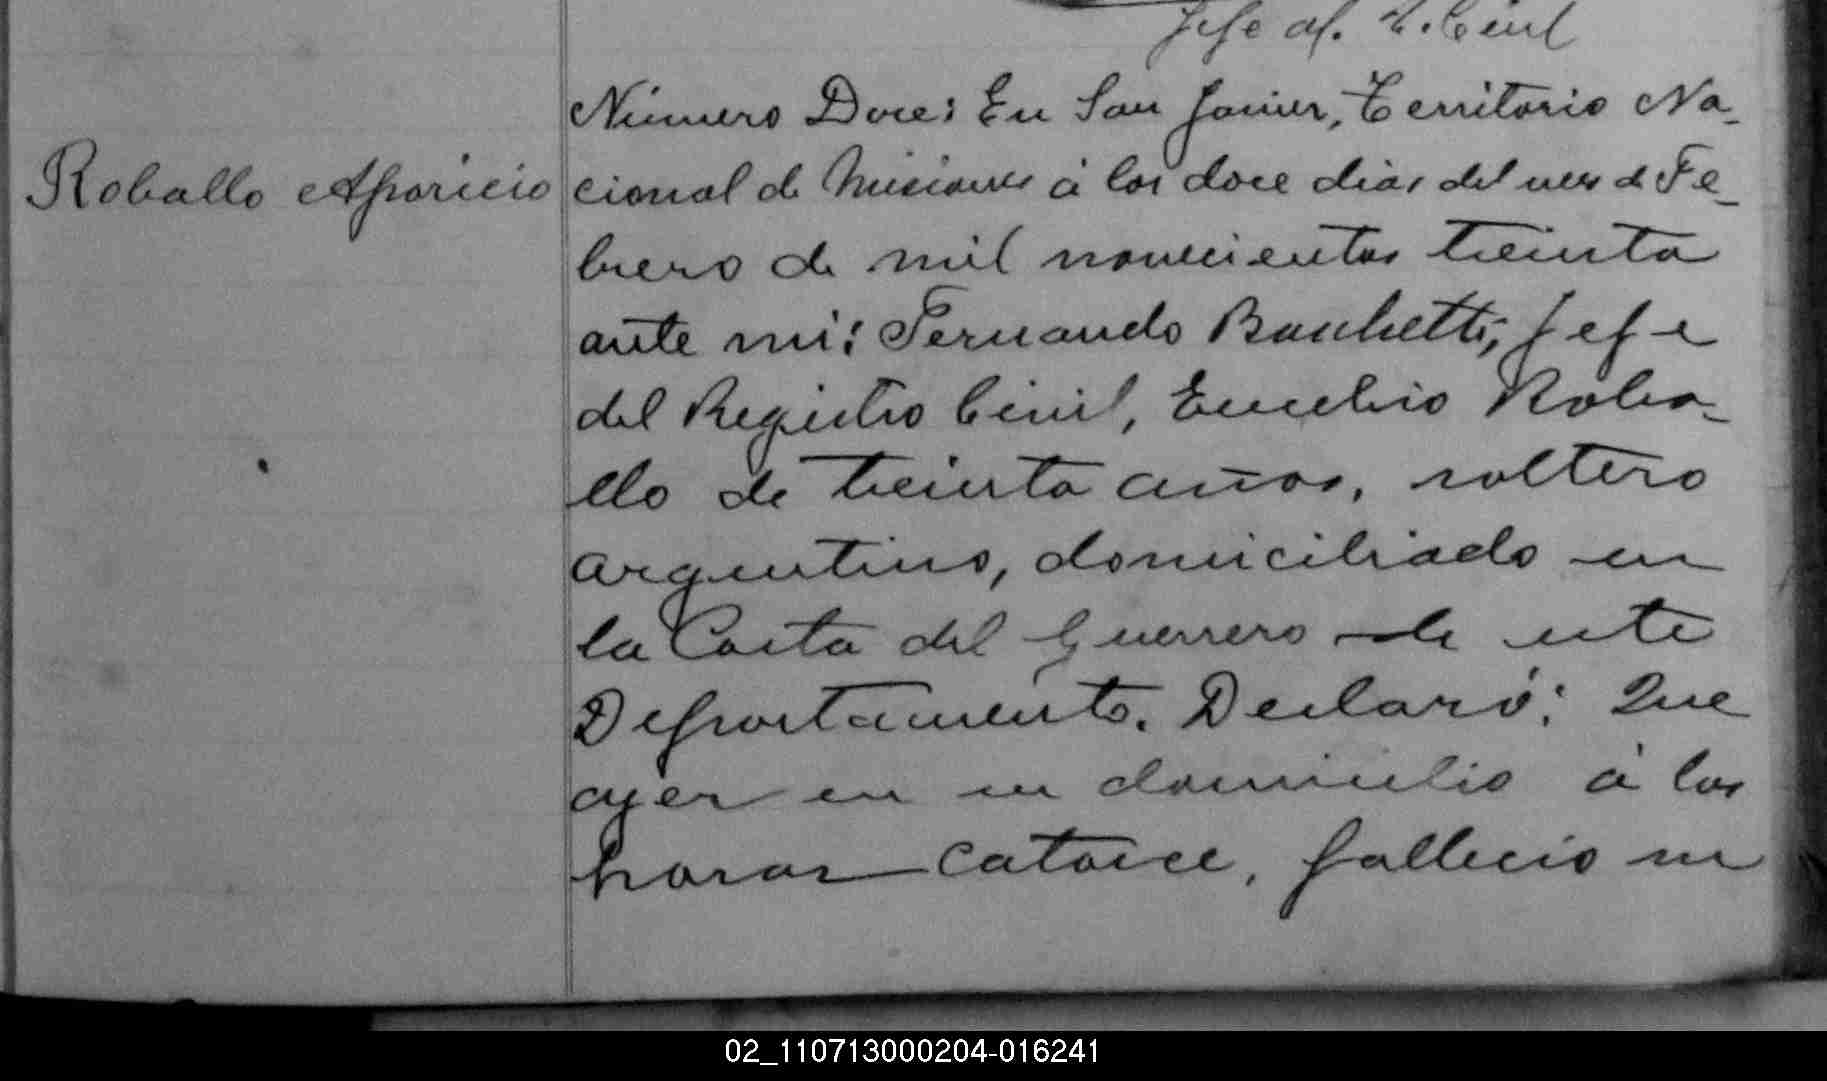 Jefe del R. Civil
Número Doce: En San Javier, Territorio Na-
Roballo Aparicio
cional de Misiones á los doce dias del mes de Fe-
brero de mil novecientos treinta
ante mi: Fernando Banchetti, Jefe
del Registro Civil, Eusebio Roba-
llo de treinta años, soltero
argentino, domiciliado en
la Costa del Guerrero de este
Departamento. Declaró: Que
ayer en su domicilio á las
horas catorce, fallecio su
02_110713000204-016241